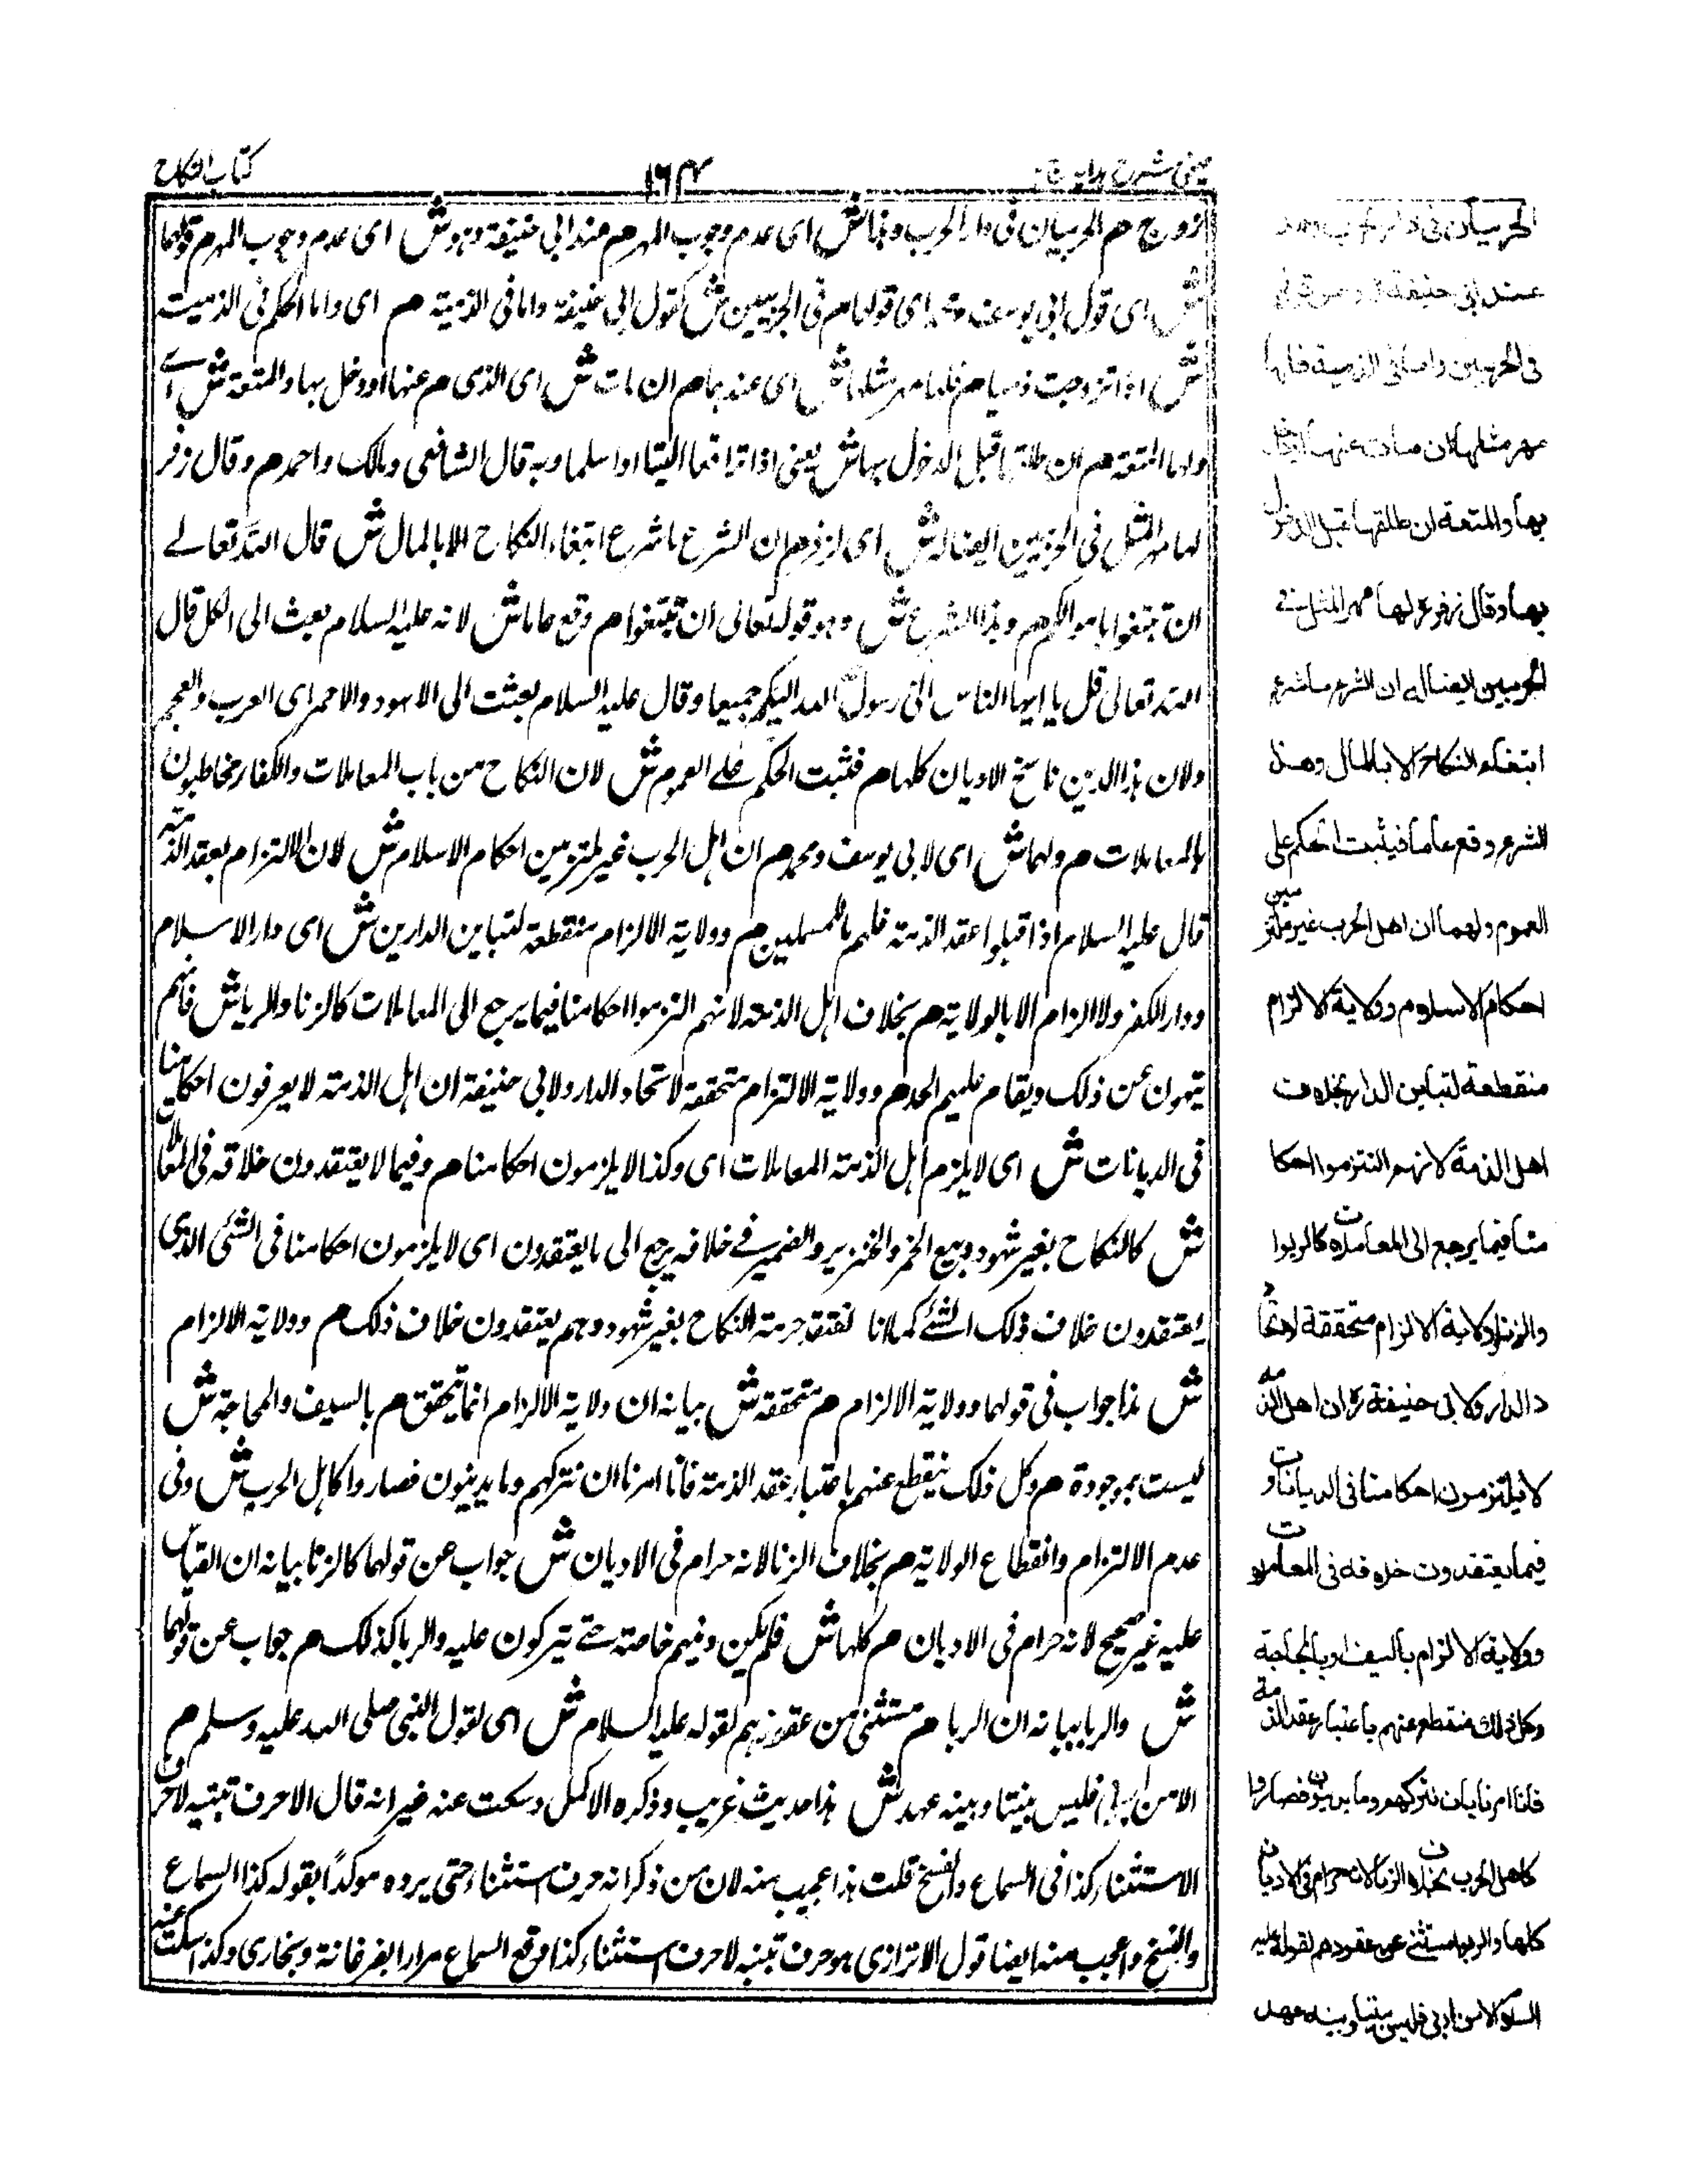 كتاب النكاح
١٦٤
عينى شرح هدايه
ازوج م الحربيان فى دار الحرب وهذا ش اى عدم وجوب المهر م عند ابى حنيفة وهو ش اى عدم وجوب المهر م قولهما
ش اى قول ابى يوسف اى قولهما م فى الحربيين ش كقول ابى حنيفة واما فى الذمية م اى واما الحكم فى الذميت
ش اذا تزوجت ذميا م فلها مهر مثلها ش اى عندهما م ان مات ش اى الذى م عنها او دخل بها والمتعة ش اے
ولها المتعة م ان طلقها قبل الدخول بها ش يعنى اذا ترافعا الينا او اسلما وبه قال الشافعى ومالك واحمد م وقال زفر
لها مهر المثل فى الحربيين ايضا له ش اى لزفر م ان الشرع ما شرع ابتغاء النكاح الا بالمال ش قال الله تعالے
ان تبتغوا باموالكم م وهذا الشرع ش وهو قوله تعالى ان تبتغوا م وقع عاما ش لانه عليه السلام بعث الى الكل قال
الله تعالى قل يا ايها الناس انى رسول الله اليكم جميعا وقال عليه السلام بعثت الى الاسود والاحمر اى العرب والعجم
ولان هذا الدين ناسخ الاديان كلها م فثبت الحكم علے العموم ش لان النكاح من باب المعاملات والكفار مخاطبون
بالمعاملات م ولهما ش اى لابى يوسف ومحمد م ان اهل الحرب غير ملتزمين احكام الاسلام ش لان الالتزام بعقد الذمة
قال عليه السلام اذا قبلوا عقد الذمة فلهم ما للمسلمين م وولاية الالزام منقطعة لتباين الدارين ش اى دار الاسلام
ودار الكفر ولا الزام الا بالولاية م بخلاف اهل الذمة لانهم التزموا احكامنا فيما يرجع الى المعاملات كالزنا والربا ش فانهم
ينهون عن ذلك ويقام عليهم الحد م وولاية الالتزام متحققة لاتحاد الدار ولابى حنيفة ان اهل الذمة لا يعرفون احكامنا
فى الديانات ش اى لا يلزم اهل الذمة المعاملات اى وكذا لا يلزمون احكامنا م وفيما لا يعتقدون خلافه فى المعاملات
ش كالنكاح بغير شهود وبيع الخمر والخنزير والضمير فے خلافه يرجع الى ما يعتقدون اى لا يلزمون احكامنا فى الشئ الذى
يعتقدون خلاف ذلك الشئے كما انا نعتقد حرمة النكاح بغير شهود وهم يعتقدون خلاف ذلك م وولاية الالزام
ش هذا جواب فى قولهما وولاية الالزام م متحققة ش بيانه ان ولاية الالزام انما يتحقق م بالسيف والمحاجة ش
ليست بموجودة م وكل ذلك ينقطع عنهم باعتبار عقد الذمة فانا امرنا ان نتركهم وما يدينون فصاروا كاهل الحرب ش وفى
عدم الالتزام وانقطاع الولاية م بخلاف الزنا لانه حرام فى الاديان ش جواب عن قولهما كالزنا بيانه ان القياس
عليه غير صحيح لانه حرام فى الاديان م كلها ش فلم يكن دينهم خاصة حتے يتركون عليه والربا كذلك م جواب عن قولهما
ش والربا بيانه ان الربا م مستثنى من عقودهم لقوله عليه السلام ش اى لقول النبى صلى الله عليه وسلم م
الا من اربى فليس بيننا وبينه عهد ش هذا حديث غريب وذكره الاكمل وسكت عنه غير انه قال الا حرف تنبيه لا حرف
الاستثناء كذا فى السماع والنسخ قلت هذا عجيب منه لان من ذكر انه حرف استثناء حتى يرده موكدا بقوله كذا السماع
والنسخ واعجب منه ايضا قول الاترازى هو حرف تنبيه لا حرف استثناء كذا وقع السماع مرارا بفرغانة وبخارى وكذا سكت عنه
الحربيان فى دار الحرب وهذا
عند ابى حنيفة وهو قولهما
فى الحربيين واما فى الذمية فلها
مهر مثلها ان مات عنها او دخل
بها والمتعة ان طلقها قبل الدخول
بها وقال زفر لها مهر المثل فے
الحربيين ايضا له ان الشرع ما شرع
ابتغاء النكاح الا بالمال وهذا
الشرع وقع عاما فيثبت الحكم على
العموم ولهما ان اهل الحرب غير ملتزمين
احكام الاسلام وولاية الالزام
منقطعة لتباين الدار بخلاف
اهل الذمة لانهم التزموا احكا
منا فيما يرجع الى المعاملات كالربوا
والزنا وولاية الالزام متحققة لاتحا
د الدار ولابى حنيفة ان اهل الذمة
لا يلتزمون احكامنا فى الديانات و
فيما يعتقدون خلافه فى المعاملات
وولاية الالزام بالسيف او بالمحاجة
وكل ذلك منقطع عنهم باعتبار عقد الذمة
فانا امرنا بان نتركهم وما يدينون فصاروا
كاهل الحرب بخلاف الزنا لانه حرام فى الاديان
كلها والربوا مستثنے عن عقودهم لقوله عليه
السلام الا من اربى فليس بيننا وبينه عهد